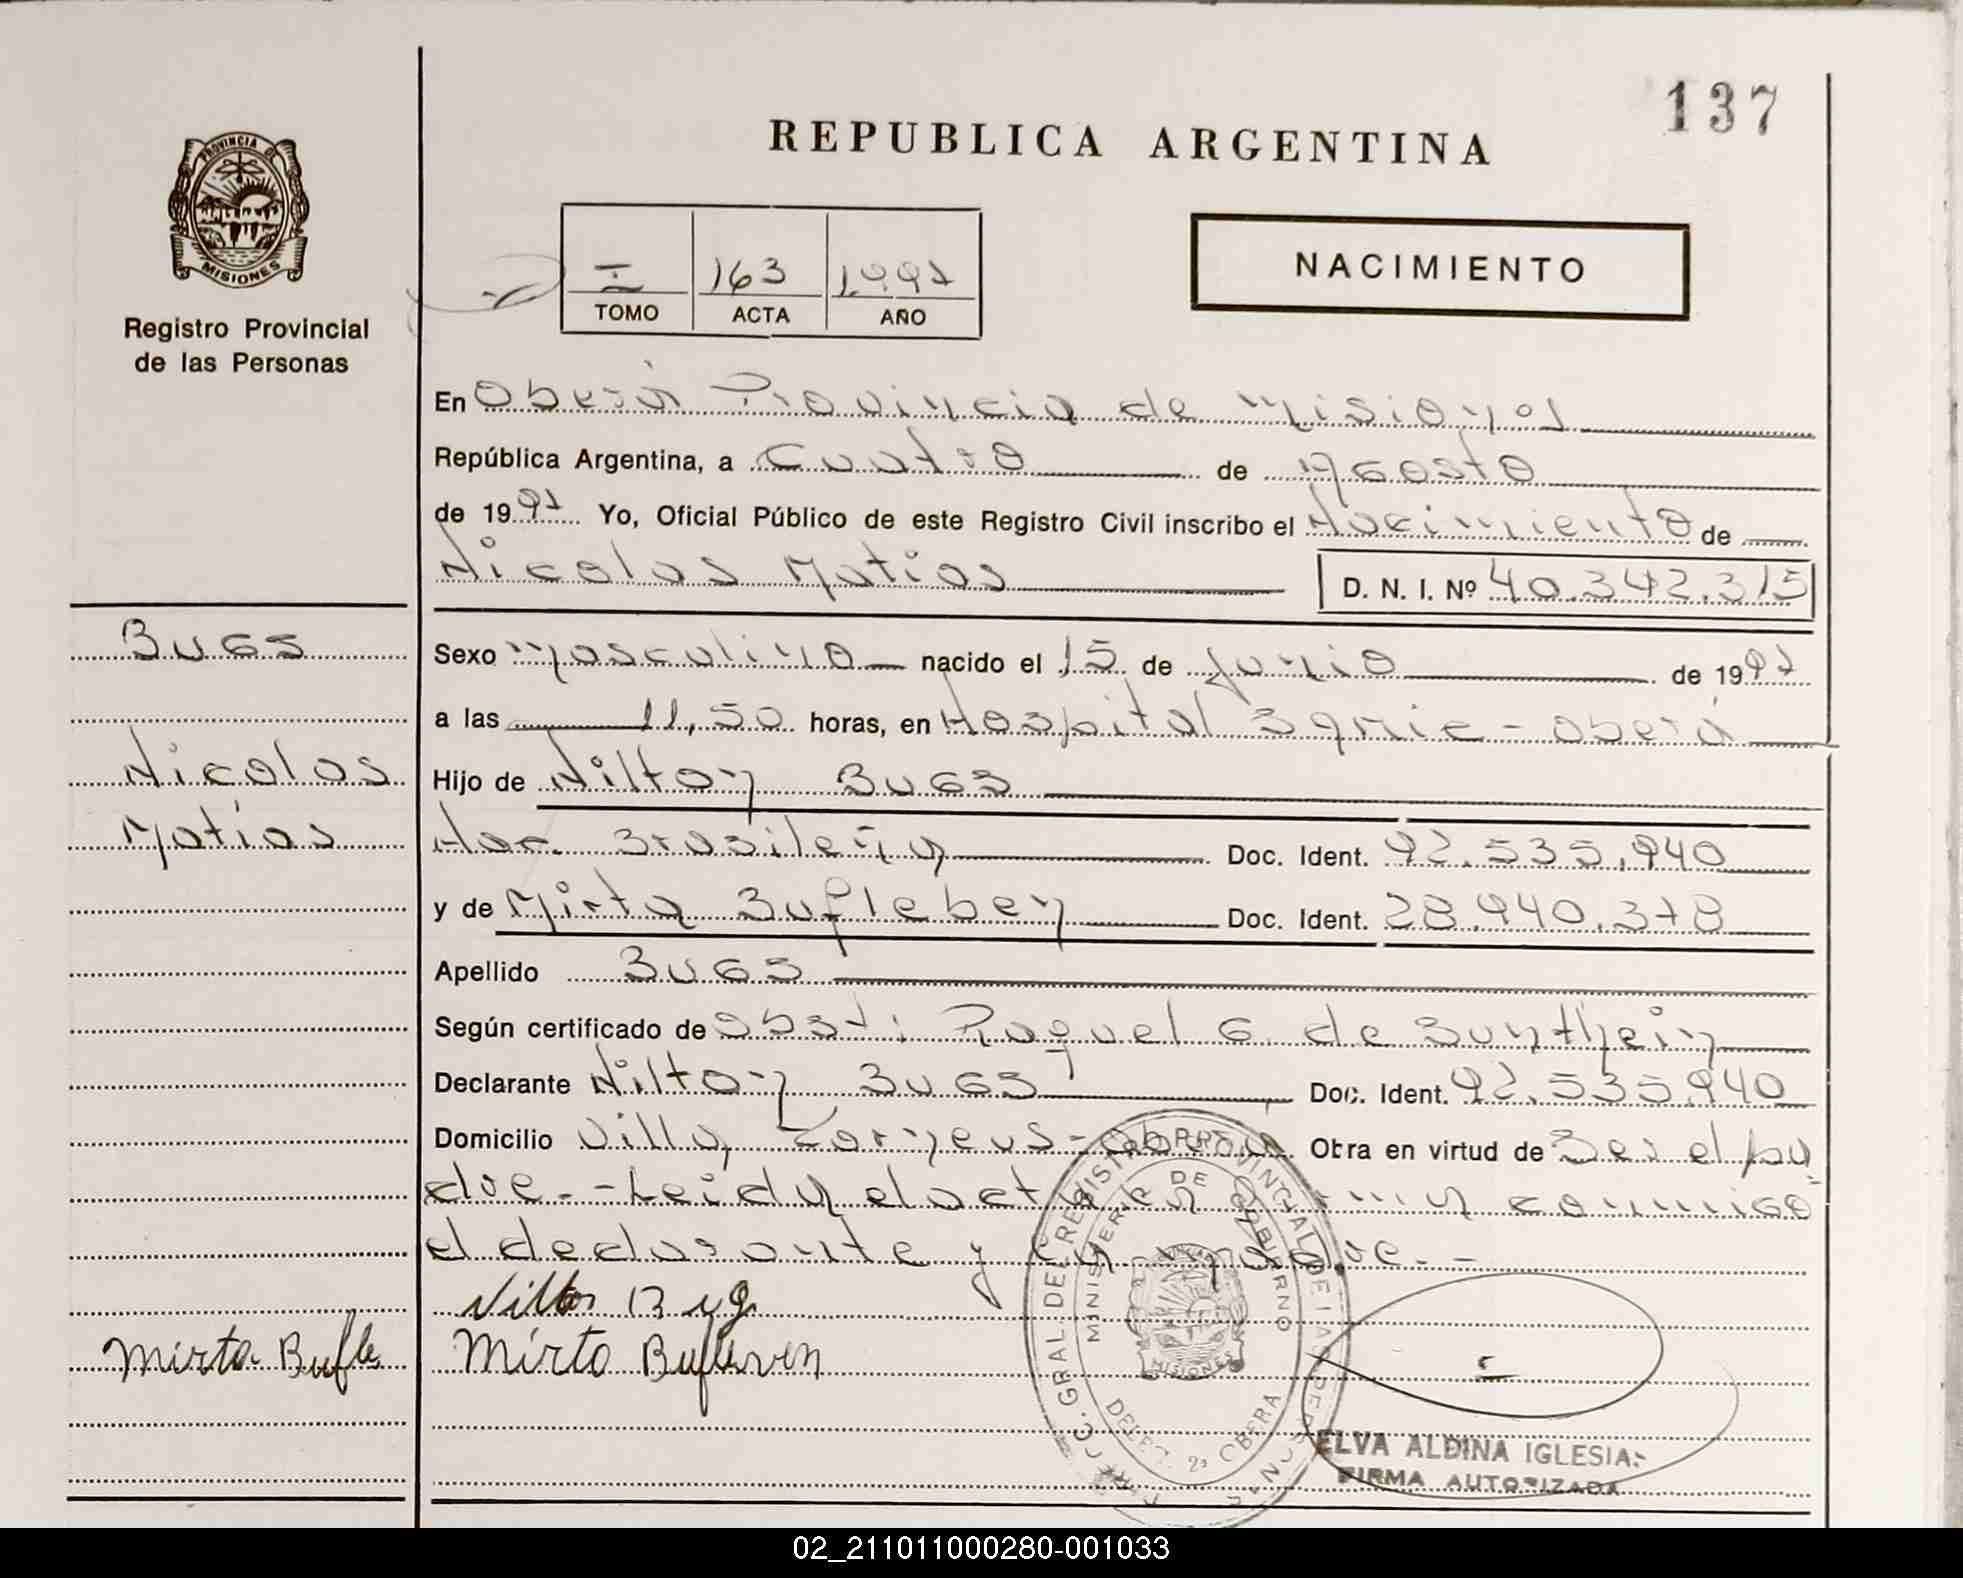 137
REPUBLICA ARGENTINA
PROVINCIA DE
MISIONES
Registro Provincial
de las Personas
I 163 1.997
TOMO ACTA AÑO
NACIMIENTO
En Oberá Provincia de Misiones
República Argentina, a Cuatro de Agosto
de 1997 Yo, Oficial Público de este Registro Civil inscribo el Nacimiento de
Nicolas Matias D. N. I. Nº 40.342.315
BUGS
Sexo Masculino nacido el 15 de Junio de 1997
a las 11,50 horas, en Hospital Samic - Oberá
Nicolas
Hijo de Nilton BUGS
Matias
Nac. Brasileña Doc. Ident. 92.535.940
y de Mirta Bufleben Doc. Ident. 28.940.378
Apellido BUGS
Según certificado de Obst: Raquel G. de Sunthein
Declarante Nilton BUGS Doc. Ident. 92.535.940
Domicilio Villa - Oberá Obra en virtud de Ser el pa
dre.- Leida el acta firma conmigo
el declarante y la madre.-
Nilton Bugs
Mirta Bufle Mirta
DIRECC. GRAL. DEL REGISTRO PROVINCIAL DE LAS PERSONAS
MINISTERIO DE GOBIERNO
MISIONES
DELEG. 2ª OBERA
ELVA ALDINA IGLESIAS
FIRMA AUTORIZADA
02_211011000280-001033